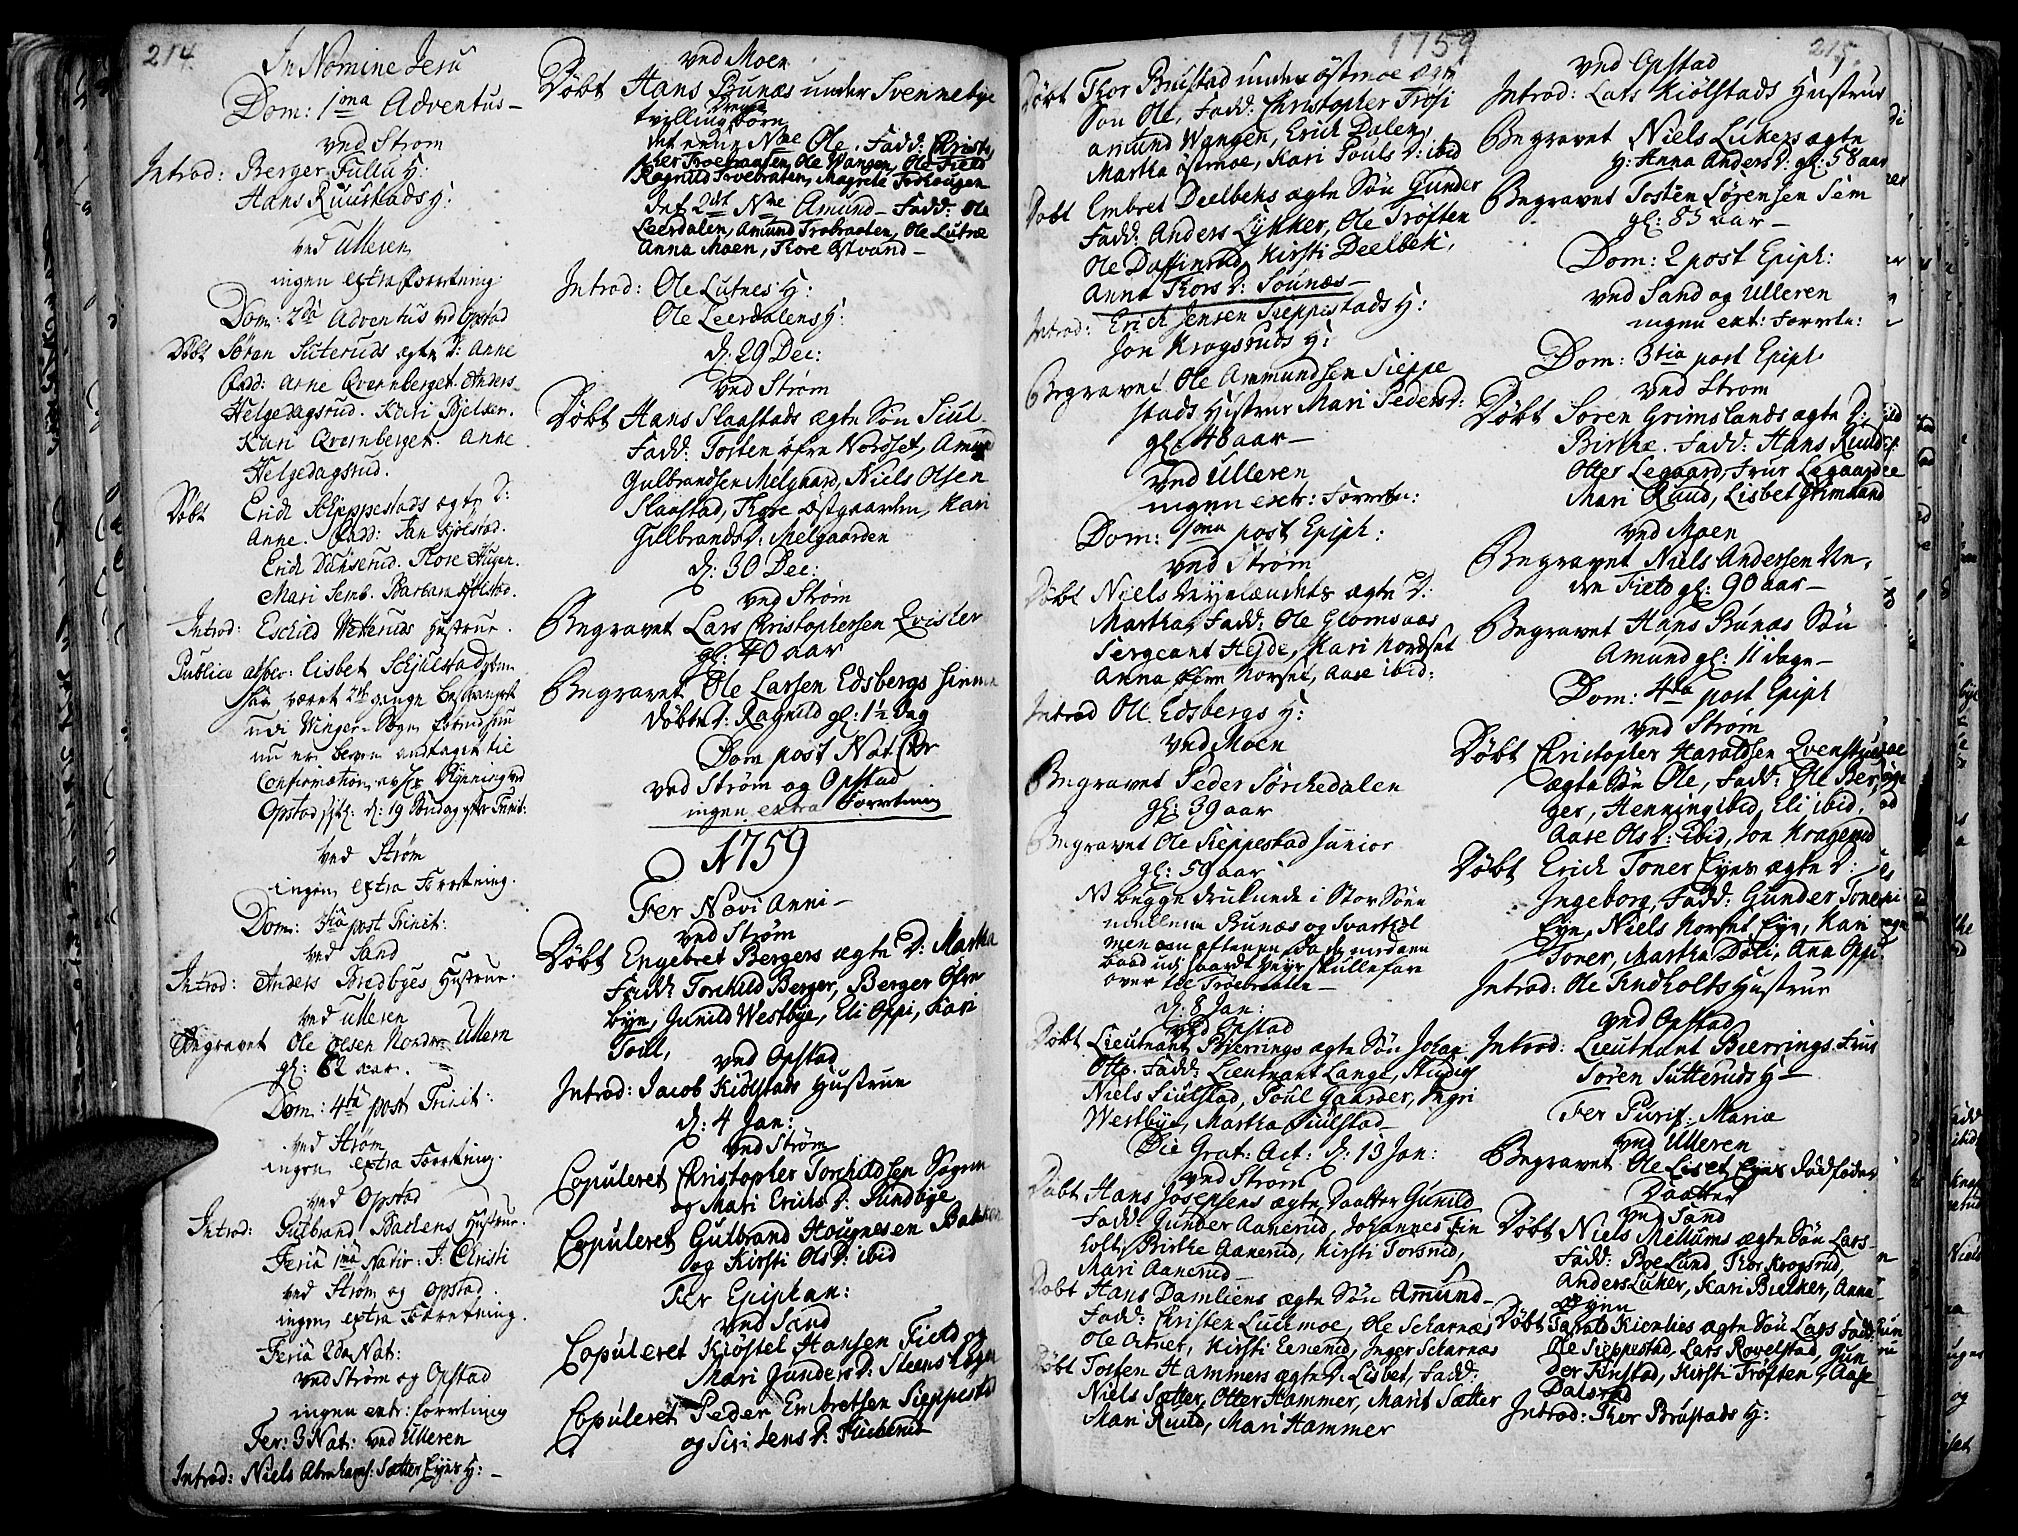 214.
In Nomine Jesu
Dom: 1ma Adventus –
ved Strøm
Introd: Berger Fullu H:
Hans Ruustads H:
ved Ulleren
ingen extra Forretning
Dom: 2da Adventus ved Opstad
Døbt Søren Sitteruds ægte D: Anne
Fadd: Arne Qvernberget. Anders
Helgedagsrud. Kari
Kari Qvernberget. Anne
Helgedagsrud.
Døbt Erich Sieppestads ægte D:
Anne. Fadd: Jan Kiolstad.
Erich Dunserud. Thore Hugen.
Mari Semb. Barbara Kiolstad.
Introd: Eschild Hustrue.
Publice absolv: Lisbet
været 2de gange besvangret
udi Winger
nu er
Confirmation
Opstad d: 19 Søndag efter Trinit:
ved Strøm
ingen extra Forretning.
Dom: 3tia post Trinit:
ved Sand
Introd: Anders Bredbyes Hustrue.
ved Ulleren
Begravet Ole Olsen Nordre Ullern
gl: 82 aar.
Dom: 4ta post Trinit:
ved Strøm
ingen extra Forretning.
ved Opstad
Introd: Gulbrand Hustrue.
Feria 1ma Nativ: J: Christi
ved Strøm og Opstad.
ingen extra Forretning.
Feria 2da Nat:
ved Strøm og Opstad
ingen extr: forretning
Fer: 3 Nat: ved Ulleren
Introd: Niels Abrahams: Sætter Eyes H: –
ved Moen
Døbt Hans Bunæs under Svennebye
tvillingbørn
det eene Nne Ole. Fadd: Christo
pher Troebraaten, Ole Wangen, Ole Field
Ragnild Troebraten, Magrete Troehougen
Det 2det Nne Amund – Fadd: Ole
Leerdalen, Amund Trobraaten, Ole Lutnæ
Anna Moen, Thore Østvand –
Introd: Ole Lutnes H:
Ole Leerdalens H:
d: 29 Dec:
ved Strøm
Døbt Hans Slaastads ægte Søn Siul
Fadd: Tosten øfre Nordset, Amund
Gulbrandsen Melgaard, Niels Olsen
Slaastad, Thore Østgaarden, Kari
Gulbrands D: Melgaarden
d: 30 Dec:
ved Strøm
Begravet Lars Christophersen Qvisler
gl: 40 aar
Begravet Ole Larsen Edsbergs hiemme
døbte D: Ragnild gl: 1½ Dag
Dom post Nat Chr
ved Strøm og Opstad
ingen extra Forretning
1759
Fer Novi Anni –
ved Strøm
Døbt Engebret Bergers ægte D: Martha
Fadd: Torchild Berger, Berger Øfre
byn, Gunild Westbye, Eli Oppi, Kari
Toill,
ved Opstad
Introd: Jacob Kiølstads Hustrue
d: 4 Jan:
ved Strøm
Copuleret Christopher Torchildsen Sogne
og Mari Erichs D: Sundbye
Copuleret Gulbrand Haagnesen Bakken
og Kirsti Ols D: ibid
Fer Epiphan:
ved Sand
Copuleret Kiøstel Hansen Field og
Mari Gunders D: Steens Eger
Copuleret Peder Embretsen Sieppestad
og Siri Jens D:
1759
Døbt Thor Brustad under Østmoe ægte
Søn Ole, Fadd: Christopher Trosi
Amund Wangen, Erich Dalen,
Martha Østmoe, Kari Pouls D: ibid
Døbt Embret Deelbeks ægte Søn Gunder
Fadd: Anders Lykker, Ole Trøften
Ole Daffinrud, Kirsti Deelbek,
Anna Thors D: Sounæs –
Introd: Erich Jensen Sieppestads H:
Jon Krogsruds H:
Begravet Ole Ammundsen Sieppe
stads Hustrue Mari Peders D:
gl: 48 aar –
ved Ulleren
ingen extr: Forretn:
Dom: 1ma post Epiph:
ved Strøm
Døbt Niels Myelændets ægte D:
Martha, Fadd: Ole Glomsaas
Sergeant Heyde, Mari Nordset
Anna øfre Norset, Aase ibid:
Introd Ole Edsbergs H:
ved Moen
Begravet Peder Sørchedalen
gl: 39 aar
Begravet Ole Sieppestad Junior
gl: 59 aar
NB begge druknede i Stor Søen
mellem Bunæs og Svarthol
men om aftenen da de med een
baad udi haardt veyr skulle fare
over til Trøebraatte –
d: 8 Jan:
ved Opstad
Døbt Lieutnant Bierrings ægte Søn Johan
Otto. Fadd: Lieutnant Lange, Studios
Niels Siulstad, Poul Gaarder, Ingri
Westbye, Martha Siulstad –
Die Grat: Act: d: 13 Jan:
ved Strøm
Døbt Hans Josephsens ægte Daatter Gunild
Fadd: Gunder Aanerud, Johannes Fin
holt, Birthe Aanerud, Kirsti Torsrud,
Mari Aanerud –
Døbt Hans Damliens ægte Søn Amund –
Fadd: Christen Lustmoe, Ole Scharnæs
Ole Arnet, Kirsti Eenerud, Inger Scharnæs
Døbt Tosten Hammers ægte D: Lisbet, Fadd:
Niels Sætter, Otter Hammer, Marit Sætter
Mari Ruud, Mari Hammer
215.
ved Opstad
Introd: Lars Kiølstads Hustrue
Begravet Niels Lukers ægte
H: Anna Anders D: gl: 58 aar
Begravet Tosten Sørensen Sem
gl: 83 aar –
Dom: 2 post Epiph:
ved Sand og Ulleren
ingen ext: Forretn:
Dom: 3tia post Epiph:
ved Strøm
Døbt Søren Grimslands ægte D:
Birthe. Fadd: Hans Ruud
Otter Legaard, Frue Lægaard
Mari Ruud, Lisbet Grimsland
ved Moen
Begravet Niels Andersen Ne,
dre Field gl: 90 aar –
Begravet Hans Bunæs Søn
Amund gl: 11 dage –
Dom: 4ta post Epiph
ved Strøm
Døbt Christopher Haraldsen
ægte Søn Ole, Fadd: Ole Ber,
ger, Henning ibid, Eli ibid,
Aase Ols D: ibid, Jon Kragerud
Døbt Erich Toner Eyes ægte D:
Ingeborg, Fadd: Gunder Toner
Eye, Niels Norset Eye, Kari
Toner, Martha Døli, Ana Oppi.
Introd: Ole Findholts Hustrue
ved Opstad
Introd: Lieutnant Bierrings Frue
Søren Sutteruds H –
Fer Purif: Mariæ
ved Ulleren
Begravet Ole Liset Eyes dødføder
Daatter
ved Sand
Døbt Niels Mellums ægte Søn Lars –
Fadd: Boe Lund, Thor Krogsrud,
Anders Luker, Kari Bielker, Anna
Øyen
Døbt Harald Kiernes ægte Søn Lars Fadd:
Ole Sieppestad, Lars Rovelstad, Gun
der Finstad, Kirsti Trøften, Aase
Dalsrud
Introd: Thor Brustads H: